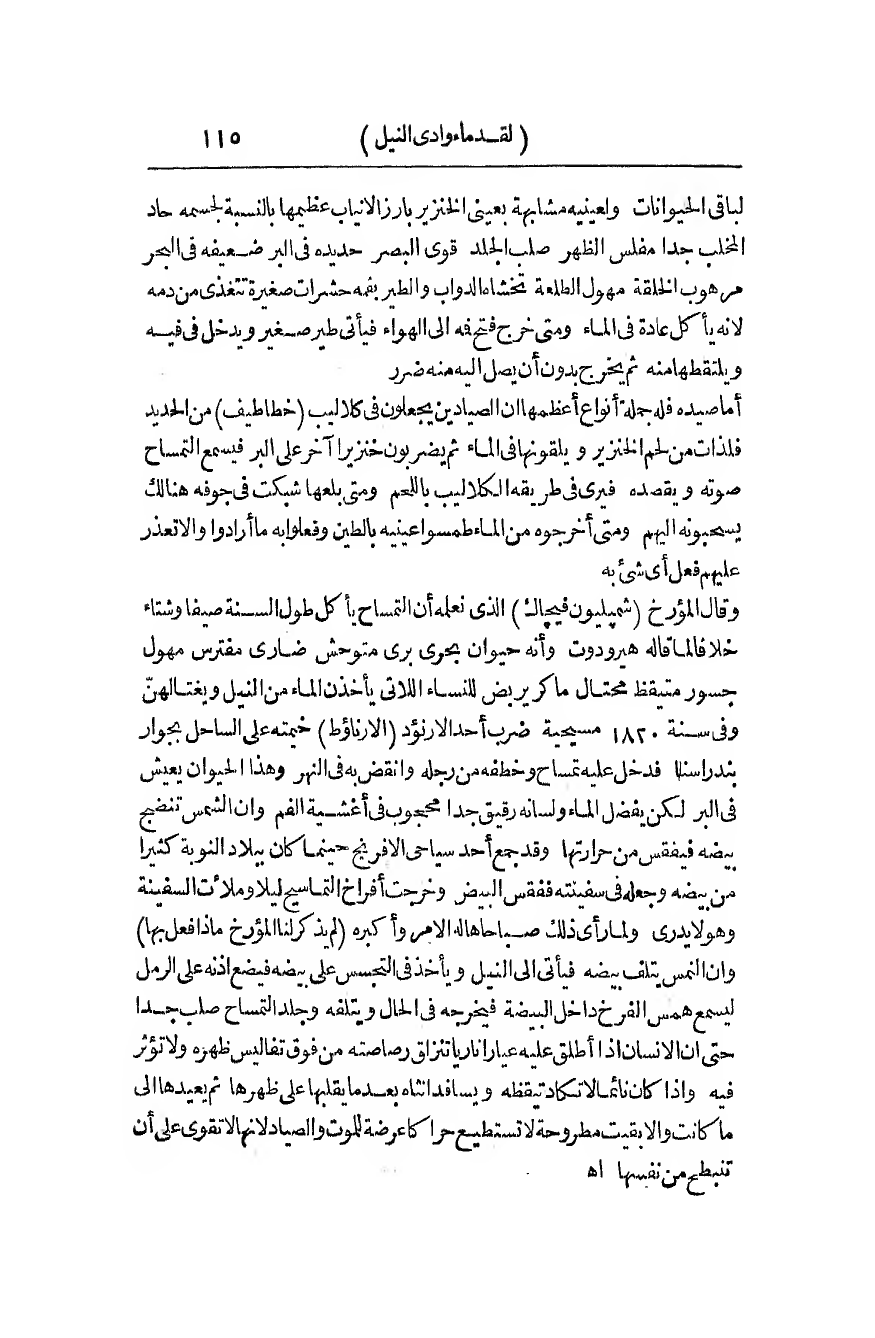 (لقدماء وادى النيل) ١١٥
لباقى الحيوانات ولعينيه مشابهة بعينى الخنزير بارز الانياب عظيمها بالنسبة لجسمه حاد
المخلب جدا مفلس الظهر صلب الجلد قوى البصر حديده فى البر ضعيفه فى البحر
مرهوب الخلقة مهول الطلعة تخشاه الدواب والطير بفمه حشرات صغيرة تتغذى من دمه
لانه يأكل عادة فى الماء ومتى خرج فتح فه الى الهواء فيأتى طير صغير ويدخل فى فيه
ويلتقطها منه ثم يخرج بدون أن يصل اليه منه ضرر
أما صيده فله جملة أنواع أعظمها ان الصيادين يجعلون فى كلاليب (خطاطيف) من الحديد
فلذات من لحم الخنزير ويلقونها فى الماء ثم يضربون خنزيرا آخر على البر فيسمع التمساح
صوته ويقصده فيرى فى طريقه الكلاليب باللحم ومتى بلعها شبكت فى جوفه هنالك
يسحبونه اليهم ومتى أخرجوه من الماء طمسوا عينيه بالطين وفعلوا به ما أرادوا والا تعذر
عليهم فعل أى شئ به
وقال المؤرخ (شمپليون فيچاك) الذى نعلمه أن التمساح يأكل طول السنة صيفا وشتاء
خلافا لما قاله هيرودوت وأنه حيوان بحرى برى متوحش ضارى مفترس مهول
جسور متيقظ محتال ماكر يربض للنساء اللاتى يأخذن الماء من النيل ويغتالهنّ
وفى سنة ١٨٢٠ مسيحية ضرب أحد الارنؤد (الارناؤط) خيمته على الساحل بجوار
بندر اسنا فدخل عليه تمساح وخطفه من رجله وانقض به فى النهر وهذا الحيوان يعيش
فى البر لكن يفضل الماء ولسانه رقيق جدا محجوب فى أغشية الفم وان الشمس تنضج
بيضه فيفقس من حرارتها وقد جمع أحد سياحى الافرنج حينما كان ببلاد النوبة كثيرا
من بيضه وجعله فى سفينته ففقس البيض وخرجت أفراخ التماسيح ليلا وملأت السفينة
وهو لا يدرى ولما رأى ذلك صباحا هاله الامر وأكبره (لم يذكر لنا المؤرخ ماذا فعل بها)
وان النمس يتلف بيضه فيأتى الى النيل ويأخذ فى التجسس على بيضه فيضع اذنه على الرمل
ليسمع همس الفرخ داخل البيضة فيخرجه فى الحال ويتلفه وجلد التمساح صلب جدا
حتى ان الانسان اذا أطلق عليه عيارا ناريا تنزلق رصاصته من فوق تفاليس ظهره ولا تؤثر
فيه واذا كان نائما لا تكاد تيقظه ويسافد انثاه بعد ما يقلبها على ظهرها ثم يعيدها الى
ما كانت والا بقيت مطروحة لا تستطيع حراكا عرضة للموت والصياد لانها لا تقوى على أن
تنبطح من نفسها اه